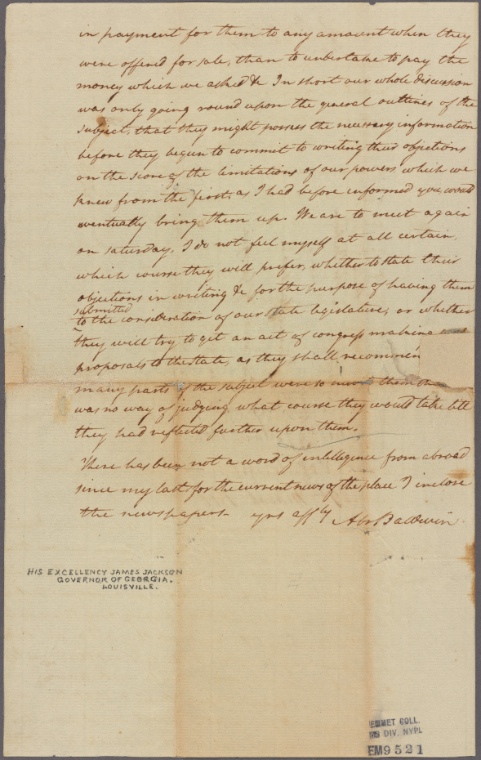 in payment for them to any amount when they
were offered for sale, than to undertake to pay the
money which we asked &c In short our whole discussion
was only going round upon the general outlines of the
subject, that they might possess the necessary information
before they begun to commit to writing their objections
on the score of the limitations of our powers which we
knew from the first, as I had before informed you would
eventually bring them up. We are to meet again
on saturday, I do not feel myself at all certain
which course they will prefer, whether to state their
objections in writing &c for the purpose of having them
submitted
to the consideration of our state legislature, or whether
they will try to get an act of congress making
proposals to the state, as they shall recommen
many parts of the subject were so them
was no way of judging what course they would take till
they had reflected further upon them.
There has been not a word of intelligence from abroad
since my last, for the current news of the place I inclose
the newspapers. yrs affly Abr Baldwin
HIS EXCELLENCY JAMES JACKSON
GOVERNOR OF GEORGIA.
LOUISVILLE.
EMMET COLL.
MS DIV. NYPL
EM9521